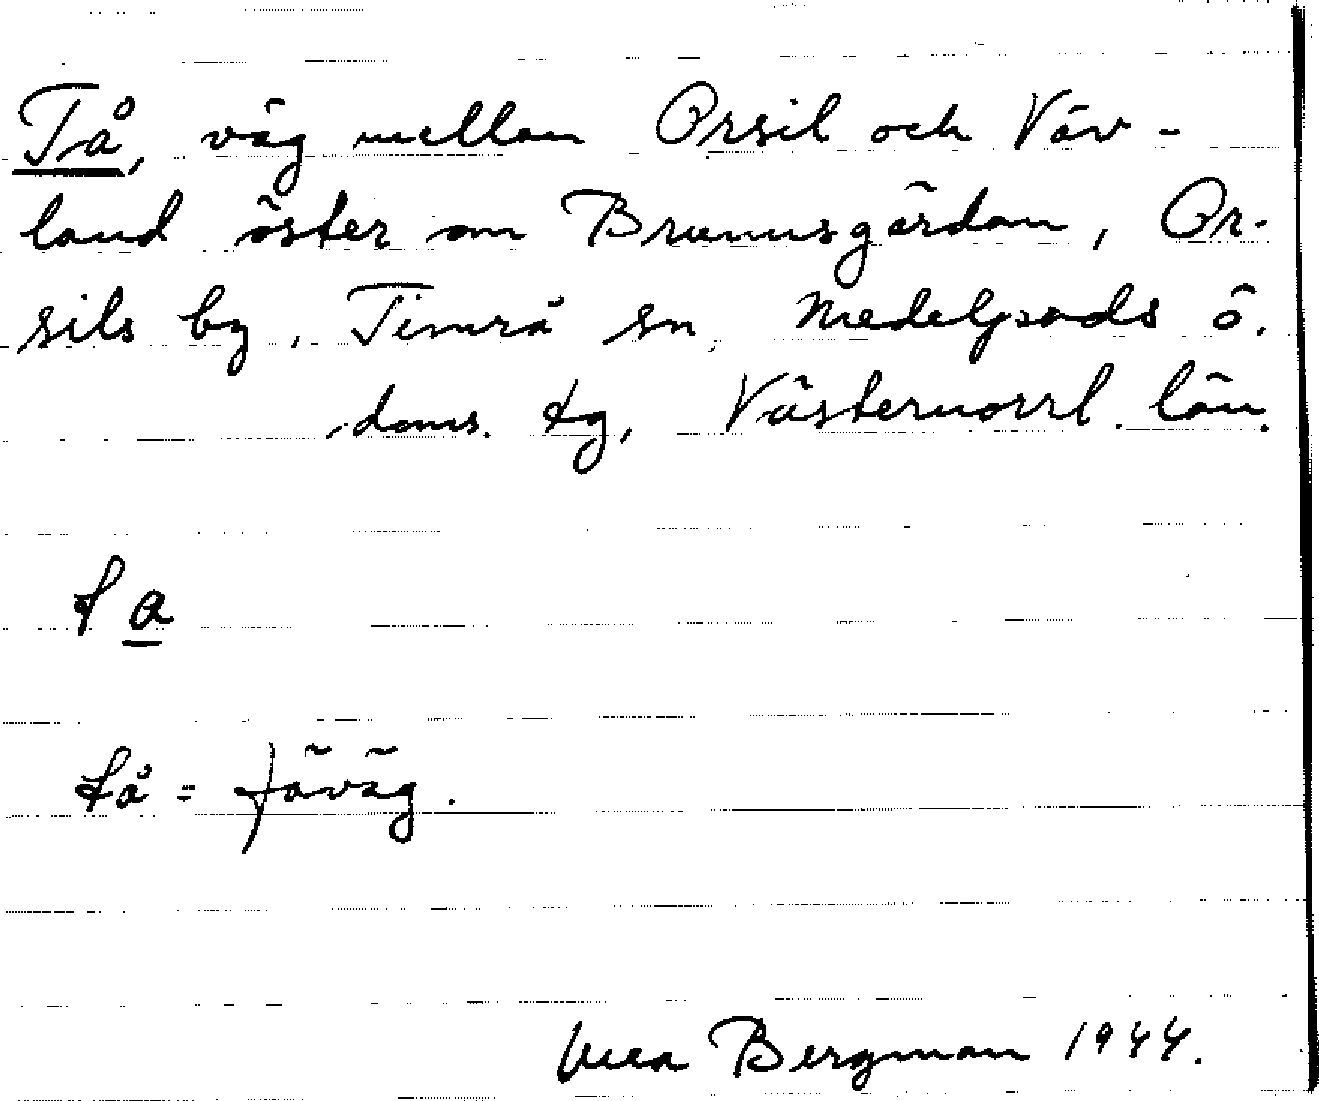 Tå, väg mellan Orsil och Väv-
land öster om Brunnsgårdan, Or-
sils by, Timrå sn, Medelpads ö.
doms. tg, Västernorrl. län.
ta
tå = fäväg.
Bergman 1944.